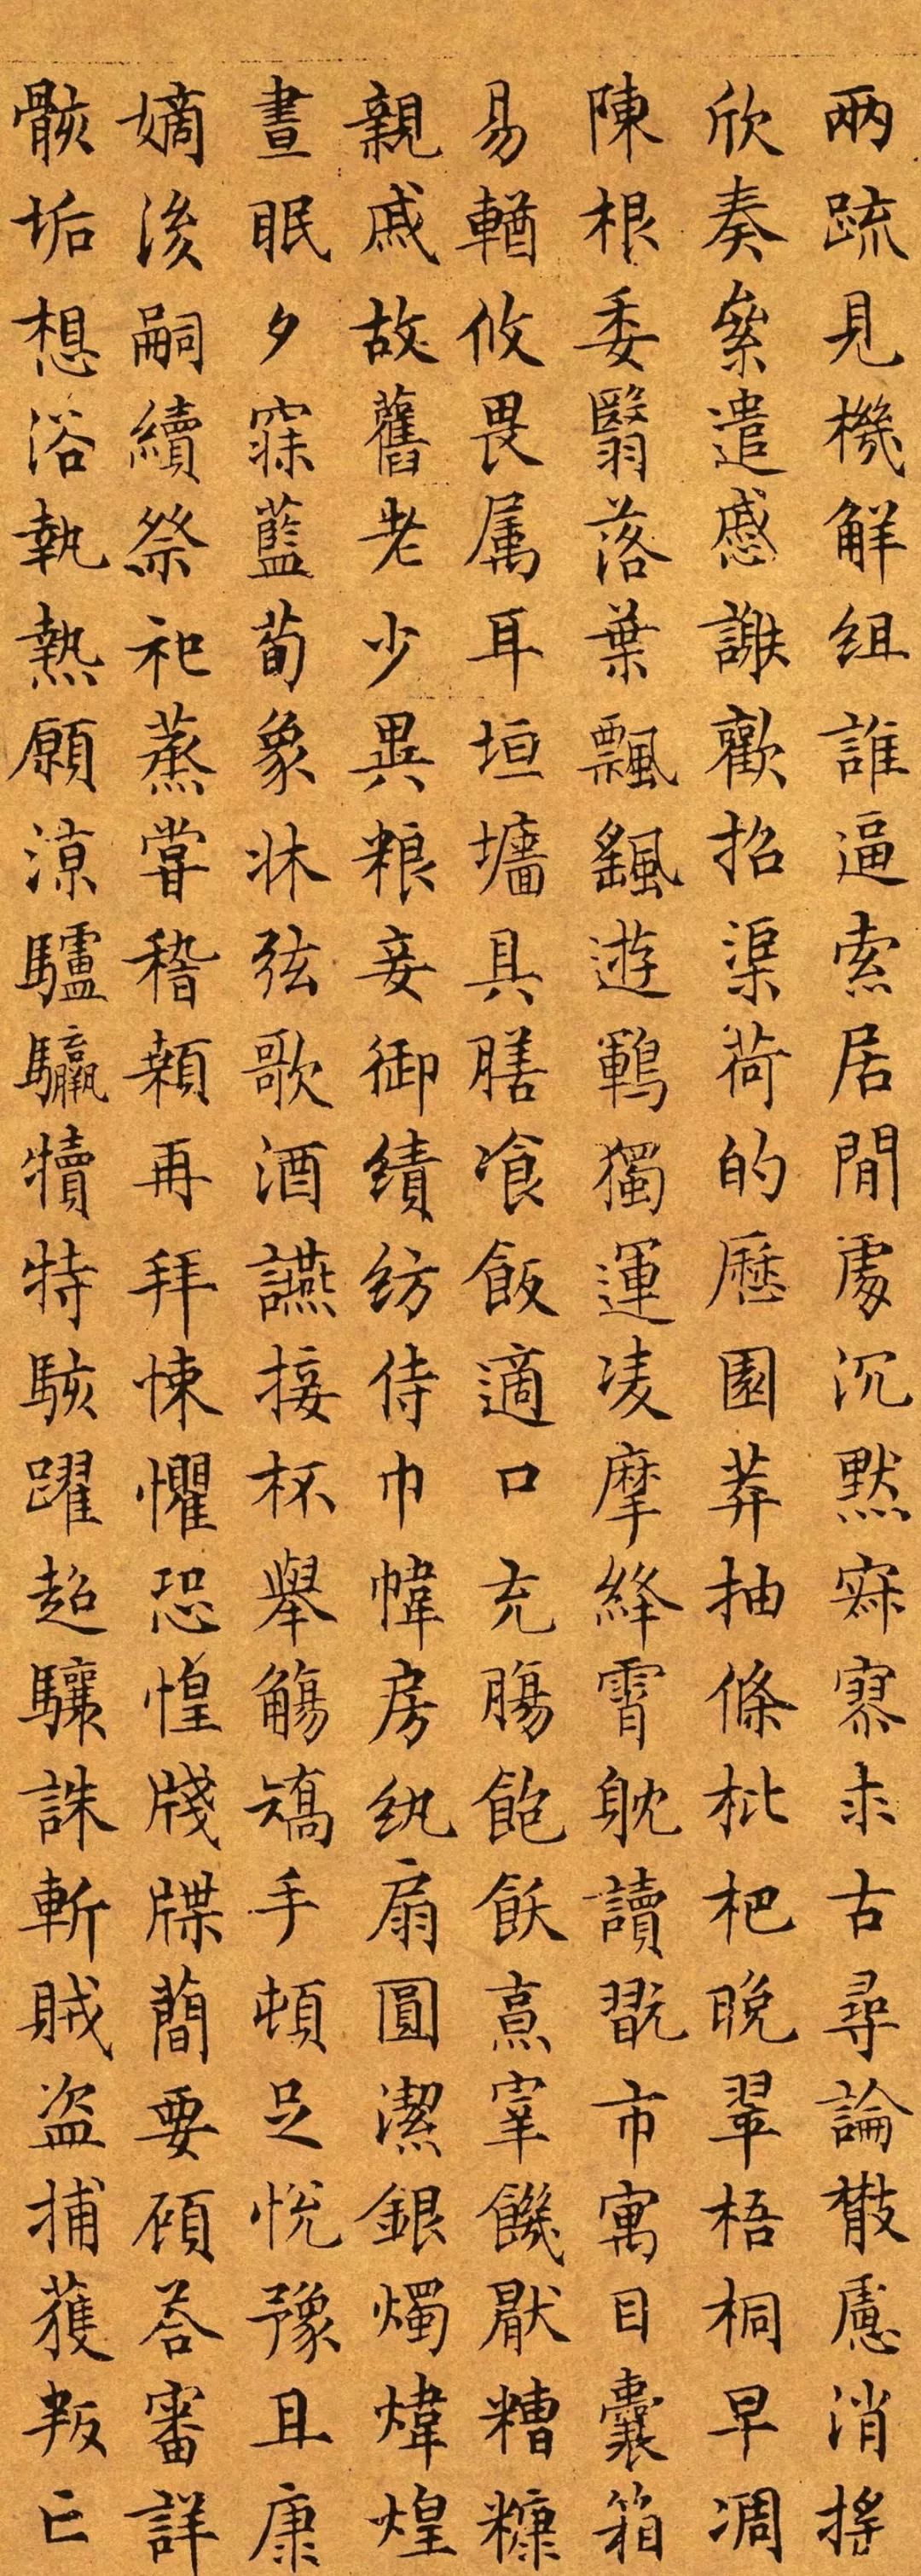 兩疏見機解組誰逼索居閒處沉默寂寥求古尋論散慮消搖
欣奏累遣慼謝歡招渠荷的歷園莽抽條枇杷晚翠梧桐早凋
陳根委翳落葉飄颻遊鵾獨運凌摩絳霄耽讀翫市寓目囊箱
易輶攸畏屬耳垣墻具膳飡飯適口充腸飽飫烹宰饑厭糟糠
親戚故舊老少異粮妾御績紡侍巾幃房紈扇圓潔銀燭煒煌
晝眠夕寐藍荀象牀弦歌酒讌接杯舉觴矯手頓足悅豫且康
嫡後嗣續祭祀蒸嘗稽顙再拜悚懼恐惶牋牒簡要顧荅審詳
骸垢想浴執熱願涼驢騾犢特駭躍超驤誅斬賊盜捕獲叛亡